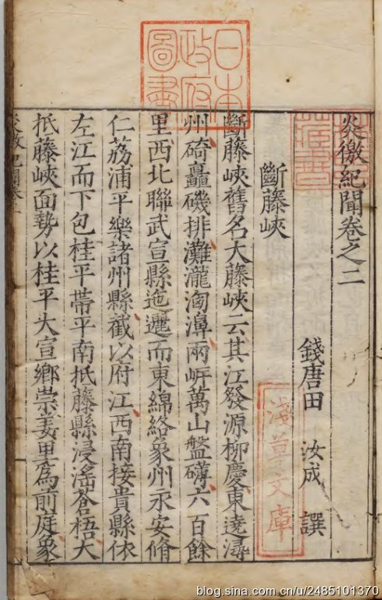 日本
政府
圖書
炎徼紀聞卷之二
錢唐田 汝成 譔
淺草文庫
斷藤峽
斷藤峽舊名大藤峽云其江發源柳慶東遶潯
州碕轟磯排灘瀧洶 兩岸萬山盤礴六百餘
里西北聯武宣縣迤邐而東綿絡象州永安脩
仁荔浦平樂諸州縣截以府江西南接貴縣依
左江而下包桂平帶平南抵藤縣浸滛蒼梧大
抵藤峽面勢以桂平大宣鄉崇姜里為前庭象
炎徼紀聞
blog.sina.com.cn/u/2485101370